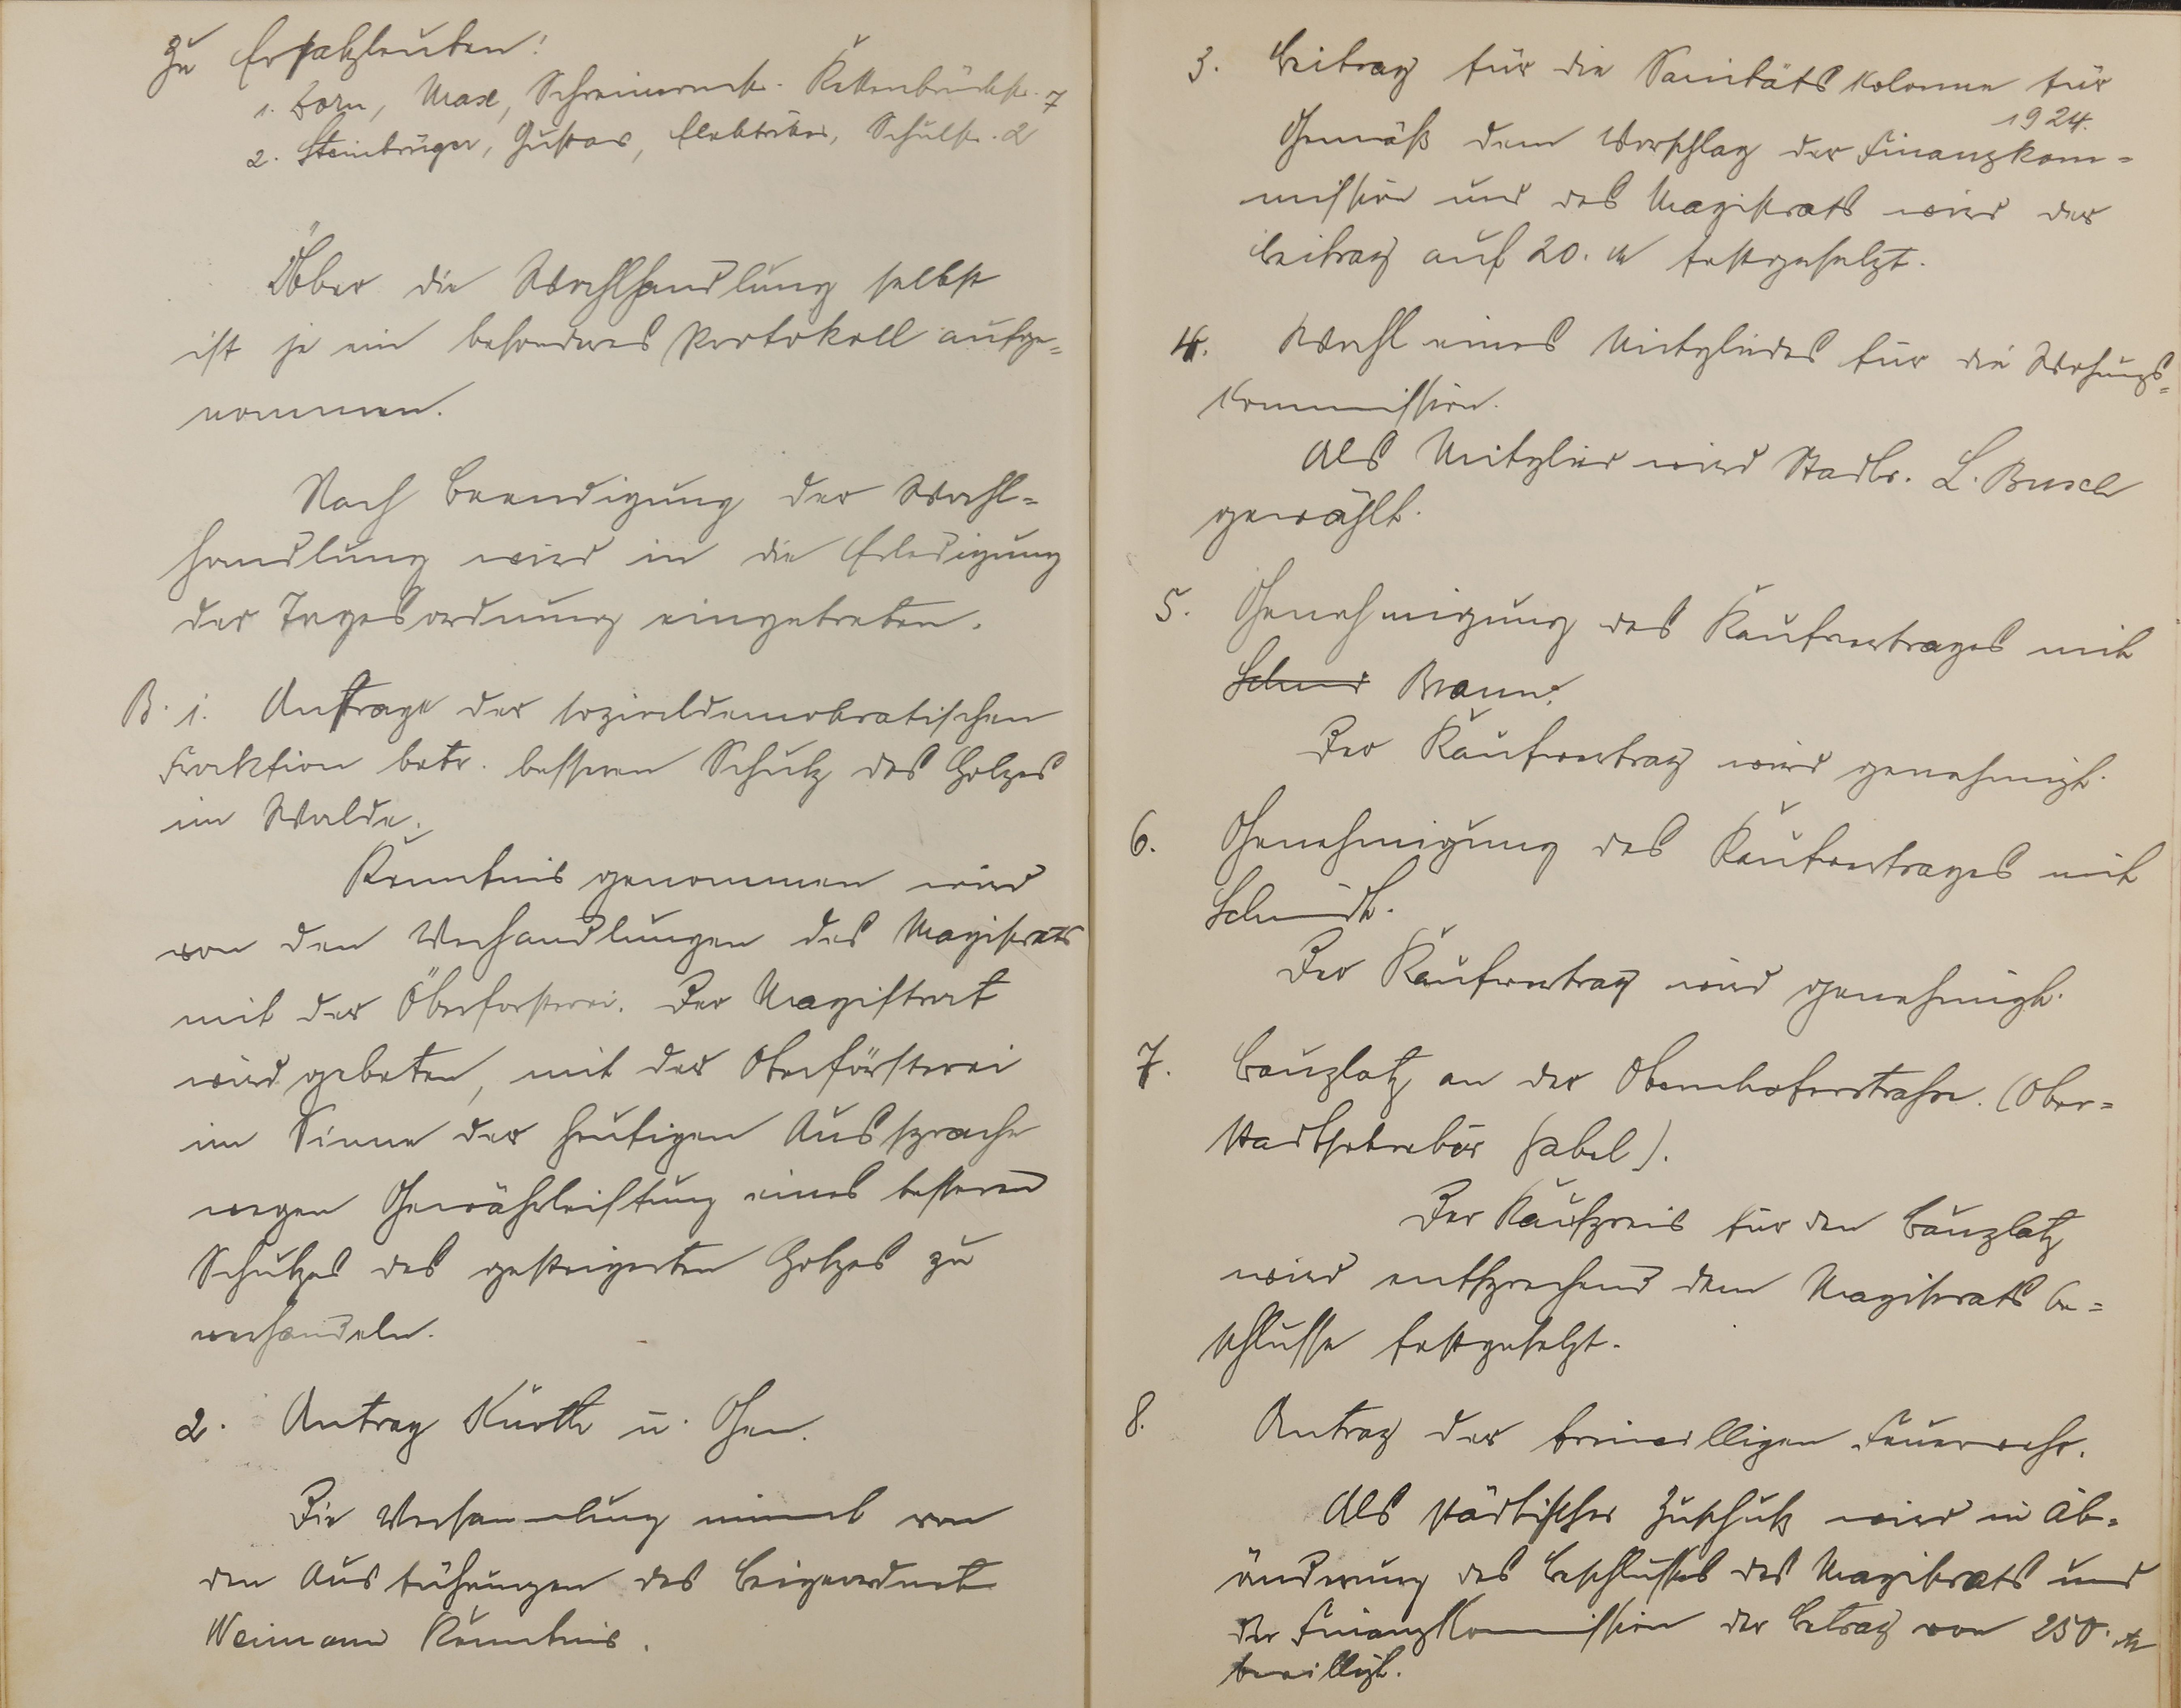 zu Ersatzleuten:
1. Born, Max, Schreinermstr. Kettenbrückstr. 7
2. Steinbrüger, Gustav, Elektriker, Schulstr. 2
Über die Wahlhandlung selbst
ist je ein besonderes Protokoll aufge=
nommen.
Nach Beendigung der Wahl=
handlung wird in die Erledigung
der Tagesordnung eingetreten.
B. 1. Anfrage der sozialdemokratischen
Fraktion betr. besseren Schutz des Holzes
im Walde.
Kenntnis genommen wird
von den Verhandlungen des Magistrats
mit der Oberförsterei. Der Magistrat
wird gebeten, mit der Oberförsterei
im Sinne der heutigen Aussprache
wegen Gewährleistung eines besseren
Schutzes des gesteigerten Holzes zu
verhandeln.
2. Antrag Kurth u. Gen.
Die Versammlung nimmt von
den Ausführungen des Beigeordneten
Weimann Kenntnis.
3. Beitrag für die Sanitätskolonne für
1924.
Gemäß dem Vorschlag der Finanzkom=
mission und des Magistrats wird der
Beitrag auf 20. M festgesetzt.
4. Wahl eines Mitgliedes für die Wohungs=
kommission.
Als Mitglied wird Stadtv. L. Busch
gewählt.
5. Genehmigung des Kaufvertrages mit
Schmid Braun.
Der Kaufvertrag wird genehmigt.
6. Genehmigung des Kaufvertrages mit
Schmidt.
Der Kaufvertrag wird genehmigt.
7. Bauplatz an der Obernhoferstraße. (Ober=
stadtsekretär Gabel).
Der Kaufpreis für den Bauplatz
wird entsprechend dem Magistratsbe=
schlusse festgesetzt.
8. Antrag der freiwilligen Feuerwehr.
Als städtischer Zuschuß wird in Ab=
änderung des Beschlusses des Magistrats und
der Finanzkommission der Betrag von 250. M
bewilligt.